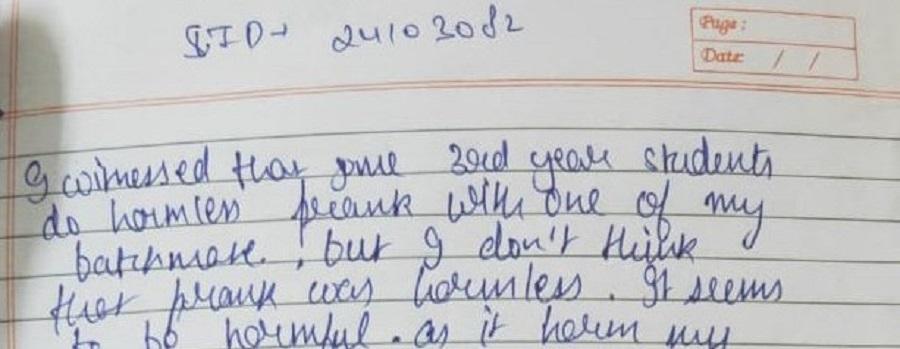 SID→ 24103082
Page:
Date: / /
I witnessed that some 3ord year students
do harmless prank with one of my
batchmate. , but I don't think
that prank was harmless. It seems
to be harmful. as it harm my